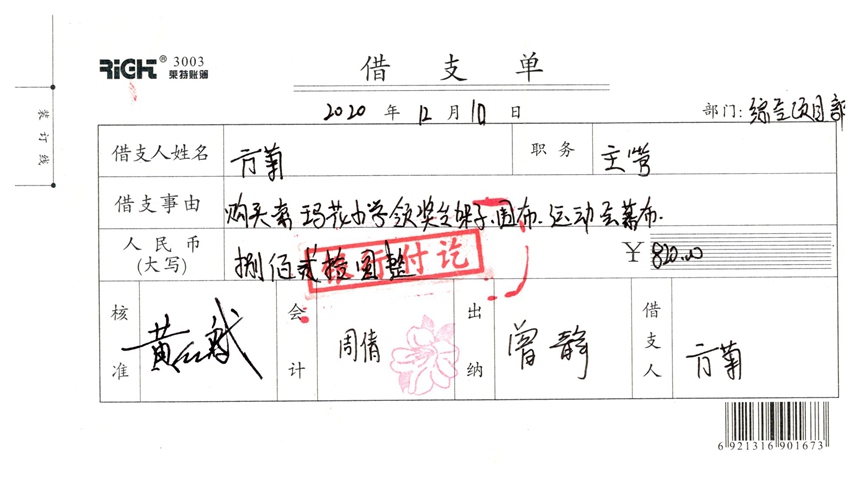 RIGHT® 3003
莱特账簿
借支单
2020年12月10日 部门:综合项目部
装订线
借支人姓名 方菊 职务 主管
借支事由 购买 玛花小学领奖台架子.围布.运动会幕布.
人民币(大写) 捌佰贰拾圆整 ¥820.00
银行付讫
核准 黄 会计 周倩 出纳 曾静 借支人 方菊
6 921316 901673